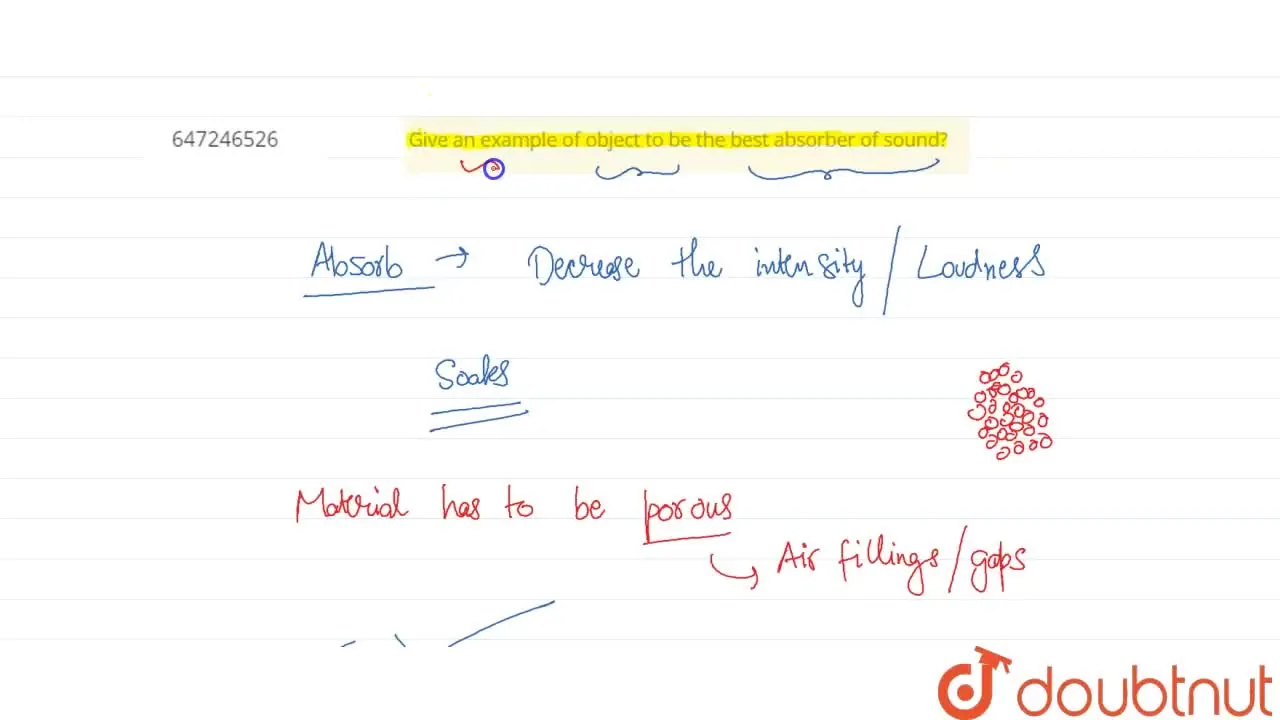 647246526 Give an example of object to be the best absorber of sound?
Absorb → Decrease the intensity / Loudness
Soaks
Material has to be porous
Air fillings / gaps
doubtnut